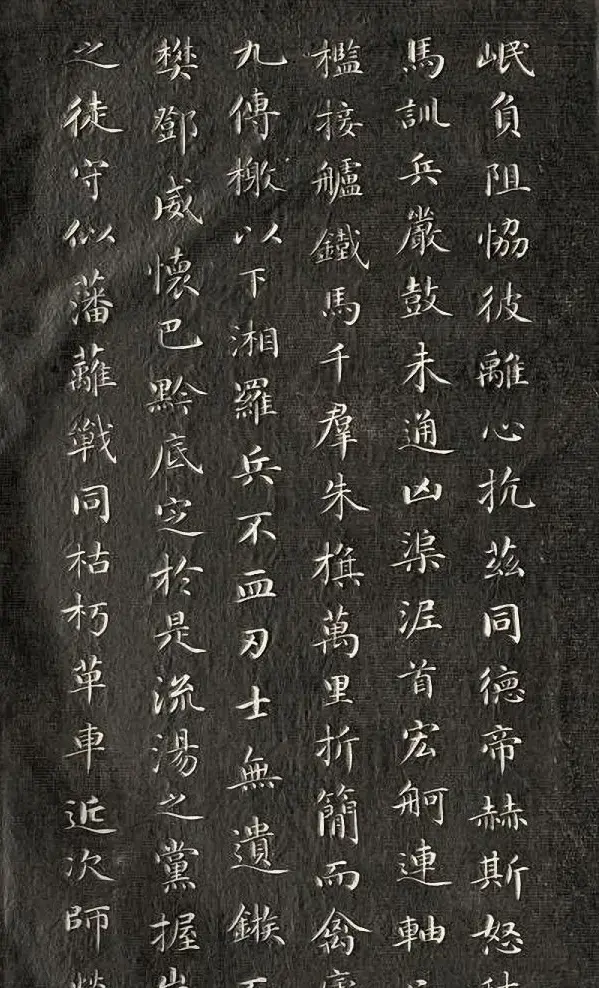 岷負阻恊彼離心抗茲同德帝赫斯怒
馬訓兵嚴鼓未通凶渠泥首宏舸連軸
檻接艫鐵馬千羣朱旗萬里折簡而禽
九傳檄以下湘羅兵不血刃士無遺鏃
樊鄧威懷巴黔底定於是流湯之黨握
之徒守似藩蘺戰同枯朽革車近次師